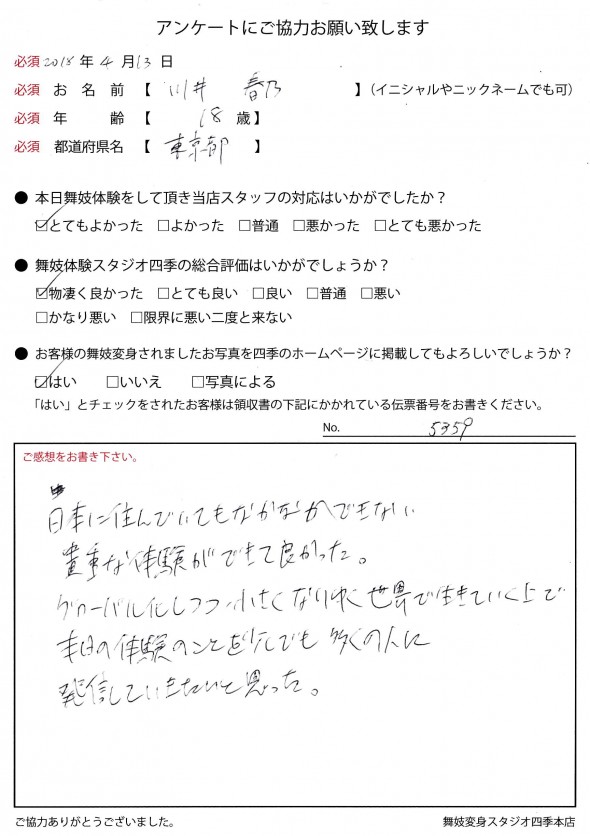 アンケートにご協力お願い致します
必須 2018年 4月13日
必須 お 名 前 【 川井 春乃 】（イニシャルやニックネームでも可）
必須 年 齢 【 18 歳】
必須 都道府県名 【 東京都 】
● 本日舞妓体験をして頂き当店スタッフの対応はいかがでしたか？
☑とてもよかった □よかった □普通 □悪かった □とても悪かった
● 舞妓体験スタジオ四季の総合評価はいかがでしょうか？
☑物凄く良かった □とても良い □良い □普通 □悪い
□かなり悪い □限界に悪い二度と来ない
● お客様の舞妓変身されましたお写真を四季のホームページに掲載してもよろしいでしょうか？
☑はい □いいえ □写真による
「はい」とチェックをされたお客様は領収書の下記にかかれている伝票番号をお書きください。
No. 5359
ご感想をお書き下さい。
日本に住んでいてもなかなかできない
貴重な体験ができて良かった。
グローバル化しつつ小さくなりゆく世界で生きていく上で
本日の体験のことを少しでも多くの人に
発信していきたいと思った。
ご協力ありがとうございました。
舞妓変身スタジオ四季本店